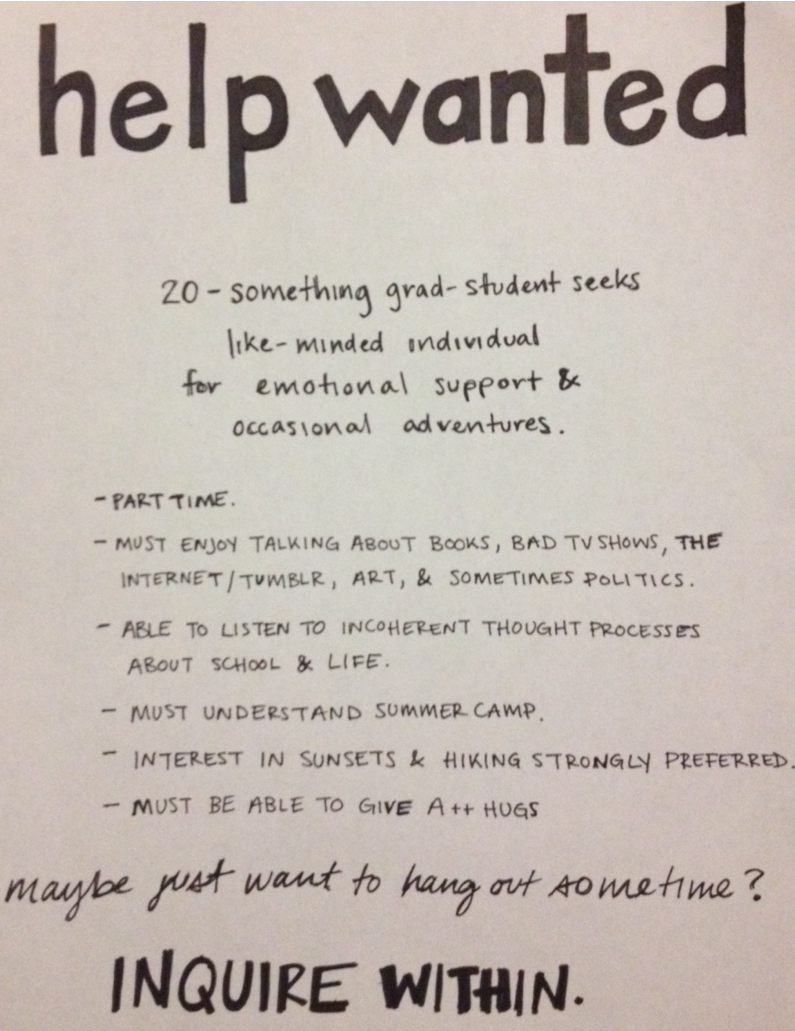 help wanted
20-something grad-student seeks
like-minded individual
for emotional support &
occasional adventures.
- PART TIME.
- MUST ENJOY TALKING ABOUT BOOKS, BAD TV SHOWS, THE
INTERNET/TUMBLR, ART, & SOMETIMES POLITICS.
- ABLE TO LISTEN TO INCOHERENT THOUGHT PROCESSES
ABOUT SCHOOL & LIFE.
- MUST UNDERSTAND SUMMER CAMP.
- INTEREST IN SUNSETS & HIKING STRONGLY PREFERRED.
- MUST BE ABLE TO GIVE A++ HUGS
maybe just want to hang out sometime?
INQUIRE WITHIN.